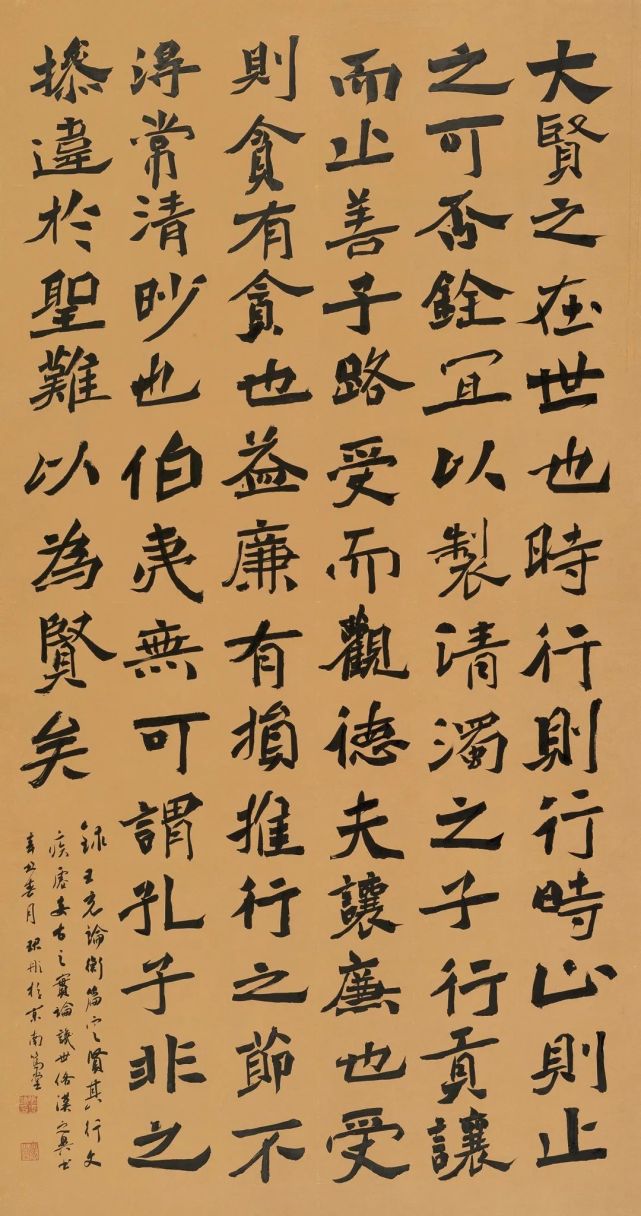 大賢之在世也時行則行時止則止
之可否銓宜以製清濁之子行貢讓
而止善子路受而觀德夫讓廉也受
則貪有貪也益廉有損推行之節不
得常清眇也伯夷無可謂孔子非之
操違於聖難以為賢矣
録王充論衡篇定賢其行文
疾虛妄古之實論譏世俗漢之異書
辛丑春月於京南堂